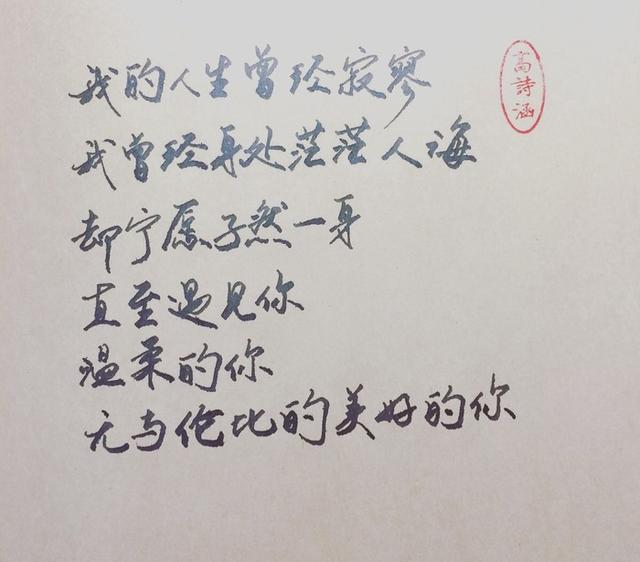 我的人生曾经寂寥
我曾经身处茫茫人海
却宁愿孑然一身
直至遇见你
温柔的你
无与伦比的美好的你
高詩涵